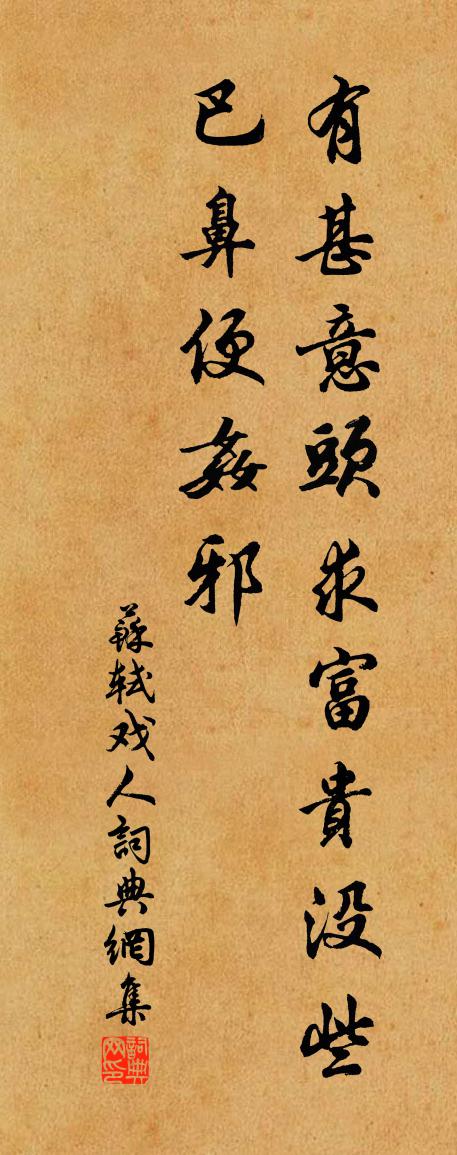 有甚意頭求富貴没些
巴鼻便姦邪
蘇軾戏人詞典網集
詞典网印